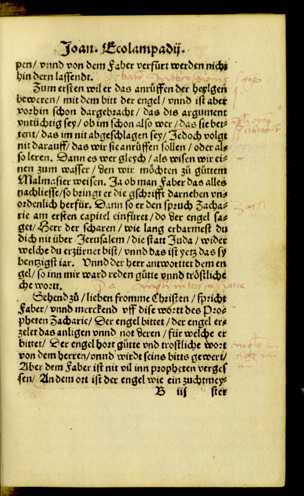 Joan. Ecolampadij.
pen/ vnnd von dem Faber verfürt werden nicht
hin dern lassendt.
Zum ersten wil er das anrüffen der heylgen
beweren/ mit dem bitt der engel/ vnnd ist aber
vorhin schon dargebracht/ das dis argument
vntüchtig sey/ ob im schon also wer/ das sie bet-
tent/ das im nit abgeschlagen sey/ Jedoch volgt
nit darauff/ das wir sie anrüffen sollen/ oder al-
so leren. Dann es wer gleych/ als wisen wir ei-
nen zum wasser/ den wir möchten zů güttem
Malmasier weisen. Ja ob man Faber das alles
nachliesse/ so bringt er die gschrifft darneben vn-
ordenlich herfür. Dann so er den spruch Zacha-
rie am ersten capitel einfürt/ do der engel sa-
get/ Herr der scharen/ wie lang erbarmest du
dich nit über Jerusalem/ die statt Juda/ wider
welche du erzürnet bist/ vnnd das ist yetz das sy
bentzigst iar. Vnnd der herr antwortet dem en
gel/ so inn mir ward reden gütte vnnd tröstliche
che wortt.
Sehend zů/ lieben fromme Christen/ spricht
Faber/ vnnd merckend vff dise wortt des Pro-
pheten Zacharie/ Der engel bittet/ der engel er-
zelet das anligen vnnd not deren/ für welche er
bittet/ Der engel hort gütte vnd trostliche wort
von dem herren/ vnnd wirdt seins bitts gewert/
Aber dem Faber ist nit vil inn propheten verges
sen/ An dem ort ist der engel wie ein zuchtmey-
B iij ster